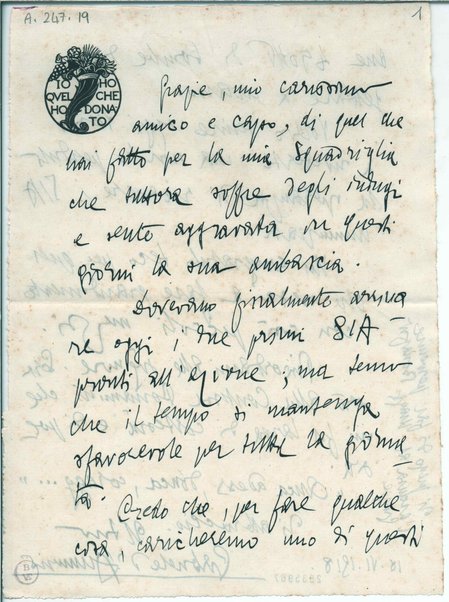 A. 247. 19
1
IO HO
QVEL CHE
HO DONA
TO
Grazie, mio carissimo
amico e capo, di quel che
hai fatto per la mia Squadriglia
che tuttora soffre degli indugi
e sente aggravata in questi
giorni la sua ambascia.
Dovevano finalmente arriva
re oggi, i due primi SIA
pronti all'azione; ma temo
che il tempo si mantenga
sfavorevole per tutta la giorna
ta.
Credo che, per fare qualche
cosa, caricheremo uno di questi